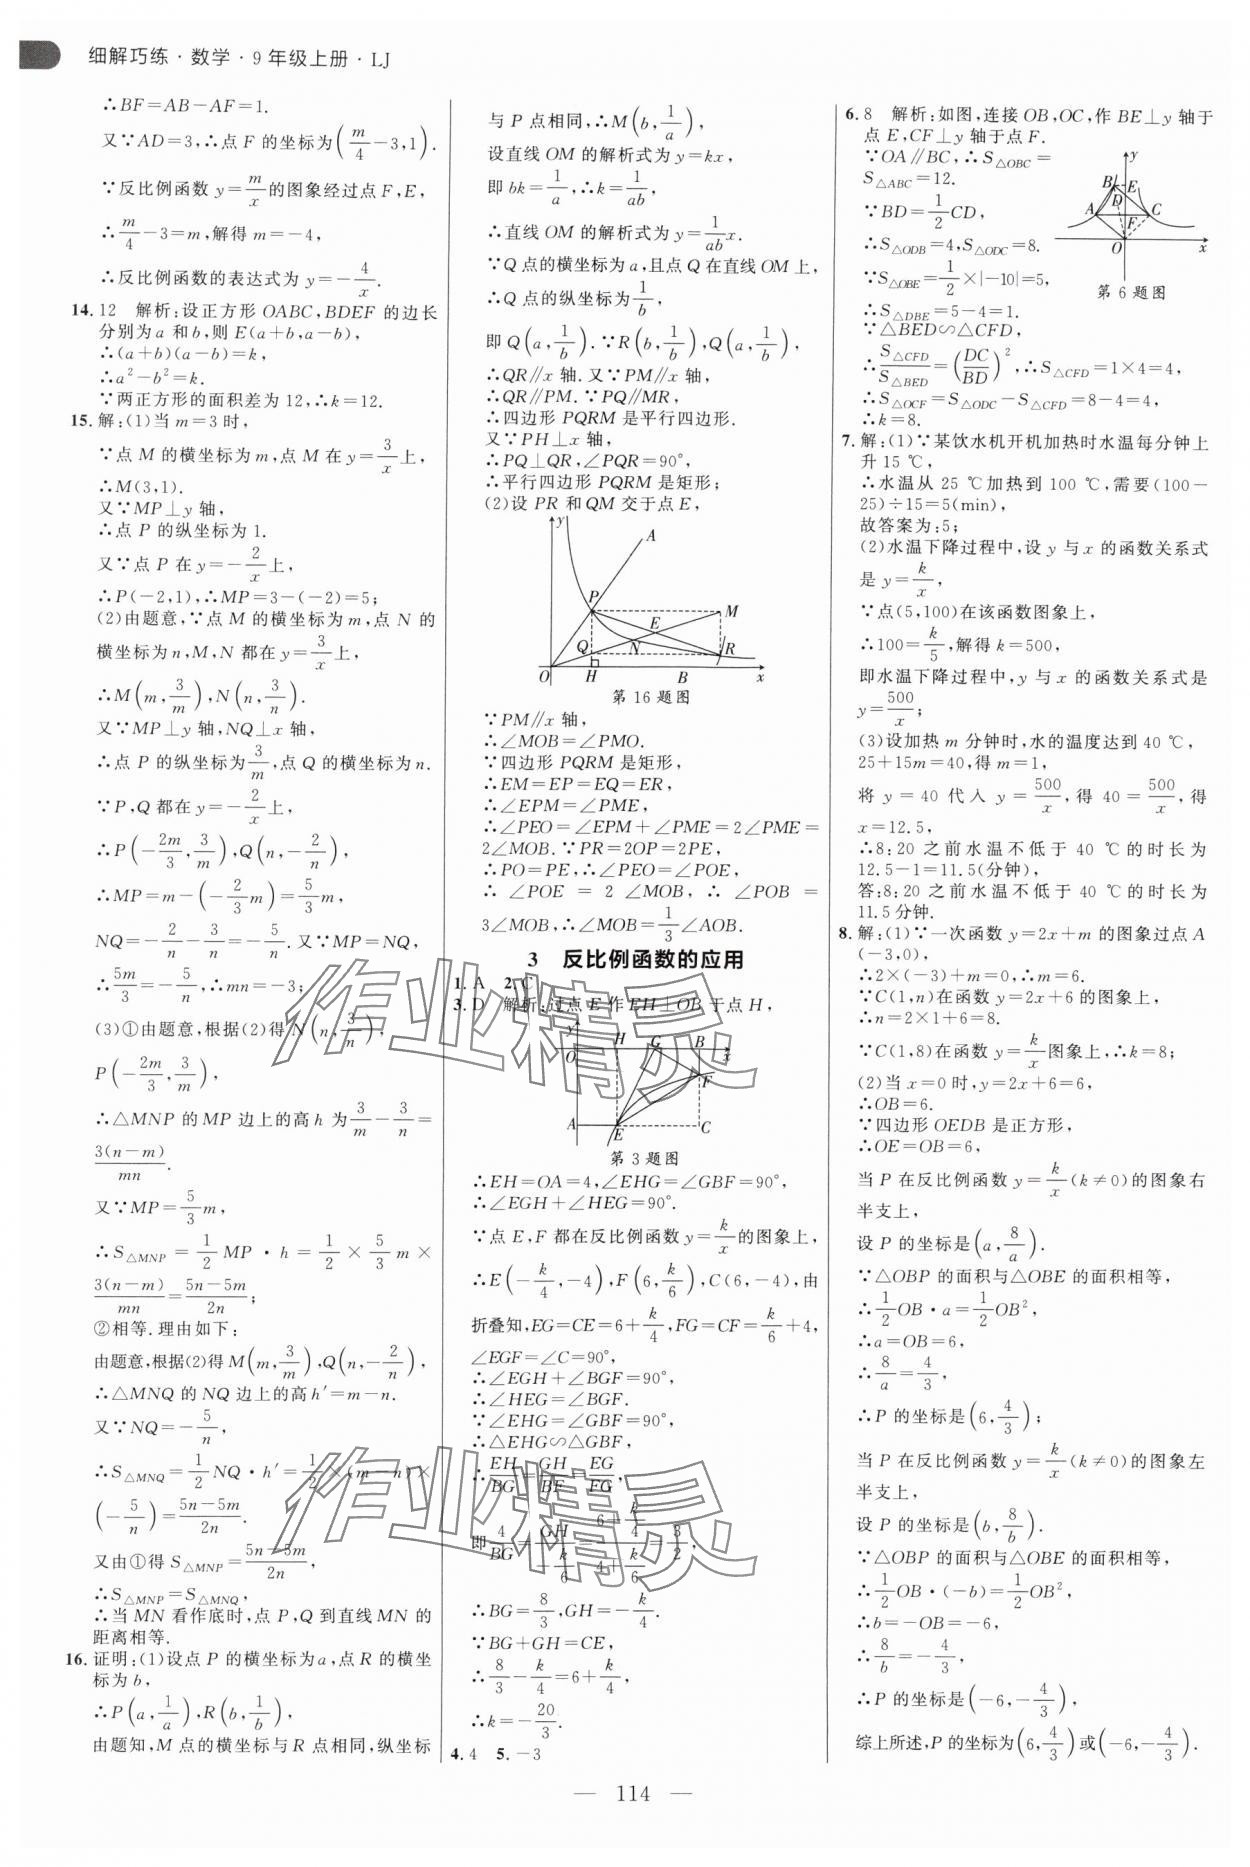 细解巧练·数学·9年级上册·LJ
∴BF=AB-AF=1.
又∵AD=3,∴点F的坐标为(m/4-3,1).
∵反比例函数y=m/x的图象经过点F,E,
∴m/4-3=m,解得m=-4,
∴反比例函数的表达式为y=-4/x.
14. 12 解析:设正方形OABC,BDEF的边长
分别为a和b,则E(a+b,a-b),
∴(a+b)(a-b)=k,
∴a²-b²=k.
∵两正方形的面积差为12,∴k=12.
15. 解:(1)当m=3时,
∵点M的横坐标为m,点M在y=3/x上,
∴M(3,1).
又∵MP⊥y轴,
∴点P的纵坐标为1.
又∵点P在y=-2/x上,
∴P(-2,1),∴MP=3-(-2)=5;
(2)由题意,∵点M的横坐标为m,点N的
横坐标为n,M,N都在y=3/x上,
∴M(m,3/m),N(n,3/n).
又∵MP⊥y轴,NQ⊥x轴,
∴点P的纵坐标为3/m,点Q的横坐标为n.
∵P,Q都在y=-2/x上,
∴P(-2m/3,3/m),Q(n,-2/n),
∴MP=m-(-2/3m)=5/3m,
NQ=-2/n-3/n=-5/n.又∵MP=NQ,
∴5m/3=-5/n,∴mn=-3;
(3)①由题意,根据(2)得N(n,3/n),
P(-2m/3,3/m),
∴△MNP的MP边上的高h为3/m-3/n=
3(n-m)/mn.
又∵MP=5/3m,
∴S△MNP=1/2MP·h=1/2×5/3m×
3(n-m)/mn=5n-5m/2n;
②相等.理由如下:
由题意,根据(2)得M(m,3/m),Q(n,-2/n),
∴△MNQ的NQ边上的高h′=m-n.
又∵NQ=-5/n,
∴S△MNQ=1/2NQ·h′=1/2×(m-n)×
(-5/n)=5n-5m/2n.
又由①得S△MNP=5n-5m/2n,
∴S△MNP=S△MNQ,
∴当MN看作底时,点P,Q到直线MN的
距离相等.
16. 证明:(1)设点P的横坐标为a,点R的横坐
标为b,
∴P(a,1/a),R(b,1/b),
由题知,M点的横坐标与R点相同,纵坐标
与P点相同,∴M(b,1/a),
设直线OM的解析式为y=kx,
即bk=1/a,∴k=1/ab,
∴直线OM的解析式为y=1/ab x.
∵Q点的横坐标为a,且点Q在直线OM上,
∴Q点的纵坐标为1/b,
即Q(a,1/b).∵R(b,1/b),Q(a,1/b),
∴QR∥x轴.又∵PM∥x轴,
∴QR∥PM.∵PQ∥MR,
∴四边形PQRM是平行四边形.
又∵PH⊥x轴,
∴PQ⊥QR,∠PQR=90°,
∴平行四边形PQRM是矩形;
(2)设PR和QM交于点E,
y
A
P
M
E
Q
N
R
O
H
B
x
第16题图
∵PM∥x轴,
∴∠MOB=∠PMO.
∵四边形PQRM是矩形,
∴EM=EP=EQ=ER,
∴∠EPM=∠PME,
∴∠PEO=∠EPM+∠PME=2∠PME=
2∠MOB.∵PR=2OP=2PE,
∴PO=PE,∴∠PEO=∠POE,
∴∠POE=2∠MOB,∴∠POB=
3∠MOB,∴∠MOB=1/3∠AOB.
3 反比例函数的应用
1. A 2. C
3. D 解析:过点E作EH⊥OB于点H,
y
H
G
B
O
x
F
A
E
C
第3题图
∴EH=OA=4,∠EHG=∠GBF=90°,
∴∠EGH+∠HEG=90°.
∵点E,F都在反比例函数y=k/x的图象上,
∴E(-k/4,-4),F(6,k/6),C(6,-4),由
折叠知,EG=CE=6+k/4,FG=CF=k/6+4,
∠EGF=∠C=90°,
∴∠EGH+∠BGF=90°,
∴∠HEG=∠BGF.
∵∠EHG=∠GBF=90°,
∴△EHG∽△GBF,
∴EH/BG=GH/BF=EG/FG,
即4/BG=GH/(-k/6)=(6+k/4)/(4+k/6)=3/2,
∴BG=8/3,GH=-k/4.
∵BG+GH=CE,
∴8/3-k/4=6+k/4,
∴k=-20/3.
4. 4 5. -3
6. 8 解析:如图,连接OB,OC,作BE⊥y轴于
点E,CF⊥y轴于点F.
∵OA∥BC,∴S△OBC=
S△ABC=12.
∵BD=1/2CD,
∴S△ODB=4,S△ODC=8.
∵S△OBE=1/2×|-10|=5,
∴S△DBE=5-4=1.
y
B
E
A
D
C
F
O
x
第6题图
∵△BED∽△CFD,
∴S△CFD/S△BED=(DC/BD)²,∴S△CFD=1×4=4,
∴S△OCF=S△ODC-S△CFD=8-4=4,
∴k=8.
7. 解:(1)∵某饮水机开机加热时水温每分钟上
升15 ℃,
∴水温从25 ℃加热到100 ℃,需要(100-
25)÷15=5(min),
故答案为:5;
(2)水温下降过程中,设y与x的函数关系式
是y=k/x,
∵点(5,100)在该函数图象上,
∴100=k/5,解得k=500,
即水温下降过程中,y与x的函数关系式是
y=500/x;
(3)设加热m分钟时,水的温度达到40 ℃,
25+15m=40,得m=1,
将y=40代入y=500/x,得40=500/x,得
x=12.5,
∴8:20之前水温不低于40 ℃的时长为
12.5-1=11.5(分钟),
答:8:20之前水温不低于40 ℃的时长为
11.5分钟.
8. 解:(1)∵一次函数y=2x+m的图象过点A
(-3,0),
∴2×(-3)+m=0,∴m=6.
∵C(1,n)在函数y=2x+6的图象上,
∴n=2×1+6=8.
∵C(1,8)在函数y=k/x图象上,∴k=8;
(2)当x=0时,y=2x+6=6,
∴OB=6.
∵四边形OEDB是正方形,
∴OE=OB=6,
当P在反比例函数y=k/x(k≠0)的图象右
半支上,
设P的坐标是(a,8/a).
∵△OBP的面积与△OBE的面积相等,
∴1/2OB·a=1/2OB²,
∴a=OB=6,
∴8/a=4/3,
∴P的坐标是(6,4/3);
当P在反比例函数y=k/x(k≠0)的图象左
半支上,
设P的坐标是(b,8/b).
∵△OBP的面积与△OBE的面积相等,
∴1/2OB·(-b)=1/2OB²,
∴b=-OB=-6,
∴8/b=-4/3,
∴P的坐标是(-6,-4/3),
综上所述,P的坐标为(6,4/3)或(-6,-4/3).
作业精灵
作业精灵
— 114 —